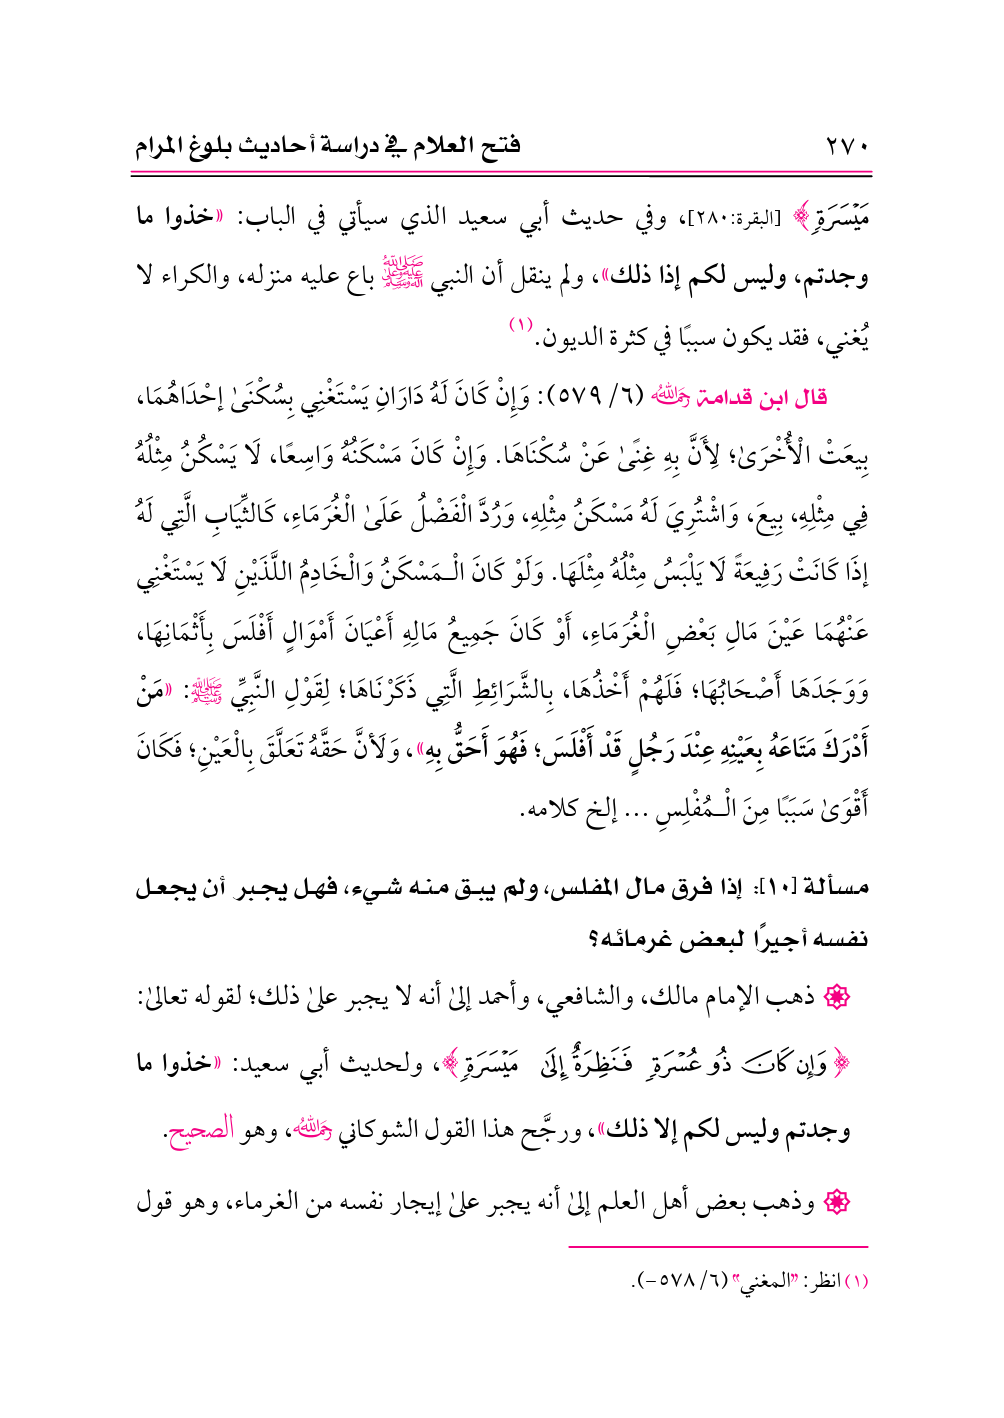 ٢٧٠ فتح العلام في دراسة أحاديث بلوغ المرام
مَيْسَرَةٍ﴾ [البقرة:٢٨٠]، وفي حديث أبي سعيد الذي سيأتي في الباب: «خذوا ما
وجدتم، وليس لكم إذا ذلك»، ولم ينقل أن النبي ﷺ باع عليه منزله، والكراء لا
يُغني، فقد يكون سببًا في كثرة الديون.(١)
قال ابن قدامة رحمه الله (٦/ ٥٧٩): وَإِنْ كَانَ لَهُ دَارَانِ يَسْتَغْنِي بِسُكْنَىٰ إحْدَاهُمَا،
بِيعَتْ الْأُخْرَىٰ؛ لِأَنَّ بِهِ غِنًىٰ عَنْ سُكْنَاهَا. وَإِنْ كَانَ مَسْكَنُهُ وَاسِعًا، لَا يَسْكُنُ مِثْلُهُ
فِي مِثْلِهِ، بِيعَ، وَاشْتُرِيَ لَهُ مَسْكَنُ مِثْلِهِ، وَرُدَّ الْفَضْلُ عَلَىٰ الْغُرَمَاءِ، كَالثِّيَابِ الَّتِي لَهُ
إذَا كَانَتْ رَفِيعَةً لَا يَلْبَسُ مِثْلُهُ مِثْلَهَا. وَلَوْ كَانَ الْـمَسْكَنُ وَالْخَادِمُ اللَّذَيْنِ لَا يَسْتَغْنِي
عَنْهُمَا عَيْنَ مَالِ بَعْضِ الْغُرَمَاءِ، أَوْ كَانَ جَمِيعُ مَالِهِ أَعْيَانَ أَمْوَالٍ أَفْلَسَ بِأَثْمَانِهَا،
وَوَجَدَهَا أَصْحَابُهَا؛ فَلَهُمْ أَخْذُهَا، بِالشَّرَائِطِ الَّتِي ذَكَرْنَاهَا؛ لِقَوْلِ النَّبِيِّ ﷺ: «مَنْ
أَدْرَكَ مَتَاعَهُ بِعَيْنِهِ عِنْدَ رَجُلٍ قَدْ أَفْلَسَ؛ فَهُوَ أَحَقُّ بِهِ»، وَلَأنَّ حَقَّهُ تَعَلَّقَ بِالْعَيْنِ؛ فَكَانَ
أَقْوَىٰ سَبَبًا مِنَ الْـمُفْلِسِ ... إلخ كلامه.
مسألة [١٠]: إذا فرق مال المفلس، ولم يبق منه شيء، فهل يجبر أن يجعل
نفسه أجيرًا لبعض غرمائه؟
ذهب الإمام مالك، والشافعي، وأحمد إلىٰ أنه لا يجبر علىٰ ذلك؛ لقوله تعالىٰ:
﴿وَإِن كَانَ ذُو عُسْرَةٍ فَنَظِرَةٌ إِلَىٰ مَيْسَرَةٍ﴾، ولحديث أبي سعيد: «خذوا ما
وجدتم وليس لكم إلا ذلك»، ورجَّح هذا القول الشوكاني رحمه الله، وهو الصحيح.
وذهب بعض أهل العلم إلىٰ أنه يجبر علىٰ إيجار نفسه من الغرماء، وهو قول
(١) انظر: "المغني" (٦/ ٥٧٨-).